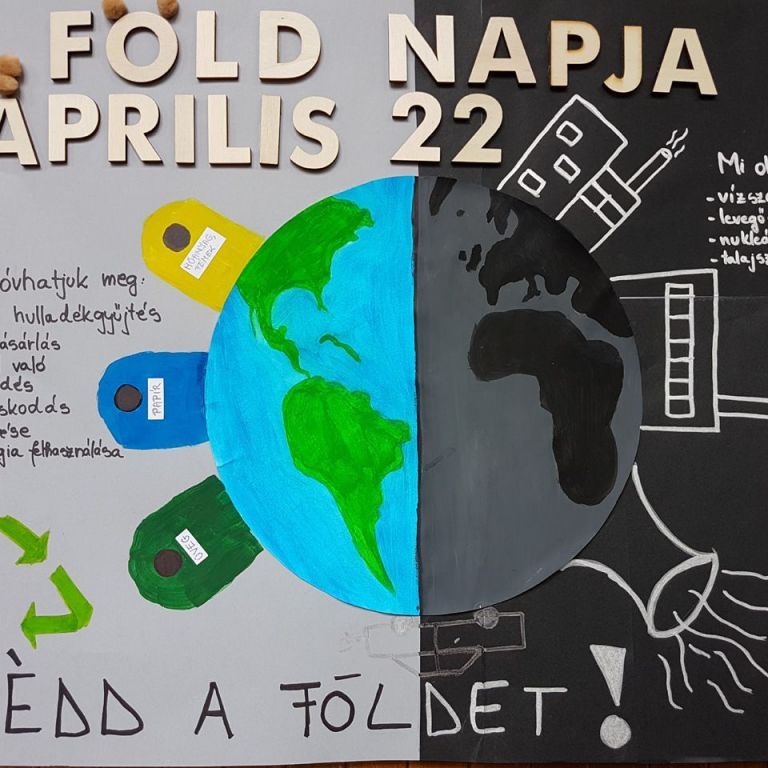 FÖLD NAPJA
APRILIS 22
Mi
- vízsz
- levegő
- nukleá
- talajsz
MŰANYAG,
FÉMEK
óvhatjuk meg:
hulladékgyűjtés
ásárlás
való
dés
skodás
ése
gia felhasználása
PAPÍR
ÜVEG
ÈDD A FŌLDET !